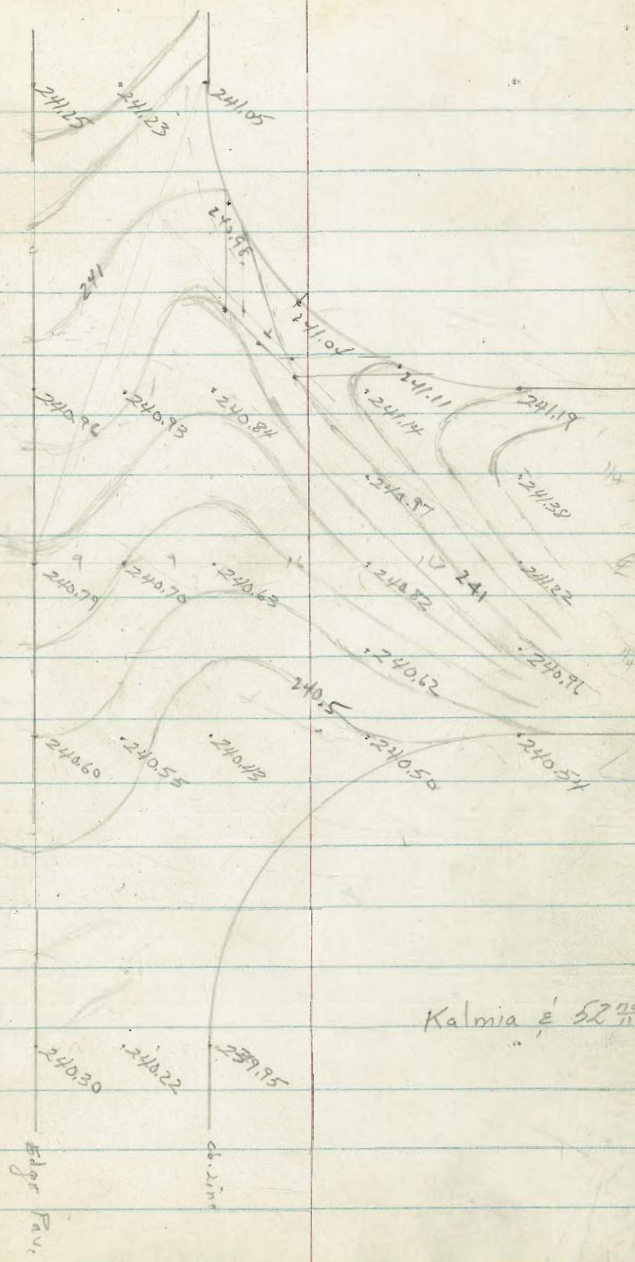 241.25 241.23 241.05
240.98
241
241.04
241.11
240.96 240.93 240.84 241.14 241.19
240.97 241.38
1/4
240.79 240.70 240.63 240.82 241 241.22
240.62 240.96
1/4
240.5
240.60 240.55 240.43 240.50 240.54
Kalmia & 52nd
240.30 240.22 239.95
Edge Pav. cb. Line